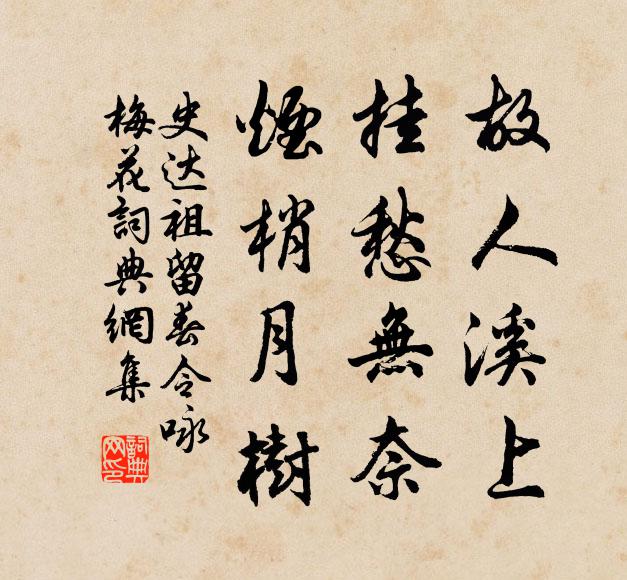 故人溪上
挂愁無奈
煙梢月樹
史达祖留春令咏
梅花詞典網集
詞典
网印